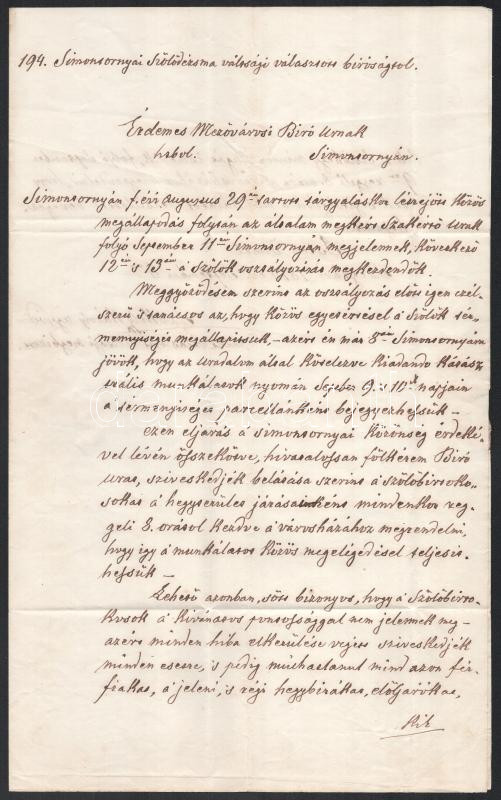 194. Simontornyai Szőlődézsma váltsági választott biróságtol.
Érdemes Mezővárosi Biró Urnak
hibol. Simontornyán.
Simontornyán f. évi Augustus 29én tartott tárgyaláskor létrejött közös
megállapodás folytán az általam megkért Szakértő Urak
folyó September 11én Simontornyán megjelennek, következő
12én 's 13én a Szőlők osztályozását megkezdendők.
Meggyőződésem szerint az osztályozás előtt igen czél-
szerű 's tanácsos az, hogy közös egyetértéssel a Szőlők ter-
mennyiségét megállapitsuk, – azért én már 8án Simontornyára
jövök, hogy az Uradalom által közvetve kiadandó
munkálatok nyomán Septeber 9. 's 10ik napjain
a térmennyiséget parczellánként bejegyezhessük –
ezen eljárás a simontornyai Közönség érdeké-
vel lévén összekötve, hivatalossan fölkérem Biró
Urat, sziveskedjék belátása szerint a szőlőbirtoko-
sokat a hegyterület járásaiként mindenkor reg-
geli 8. orátol kezdve a városházához megrendelni,
hogy igy a munkálatot közös megelégedéssel teljesit-
hessük –
Lehető azonban, sőtt bizonyos, hogy a Szőlőbirto-
kosok a kivánatos pontossággal nem jelennek meg –
azért minden hiba elkerülése végett sziveskedjék
minden esetre, 's pedig mulhatlanul mind azon fér-
fiakat, a jeleni, 's régi hegybirákat, előljárókat,
kik